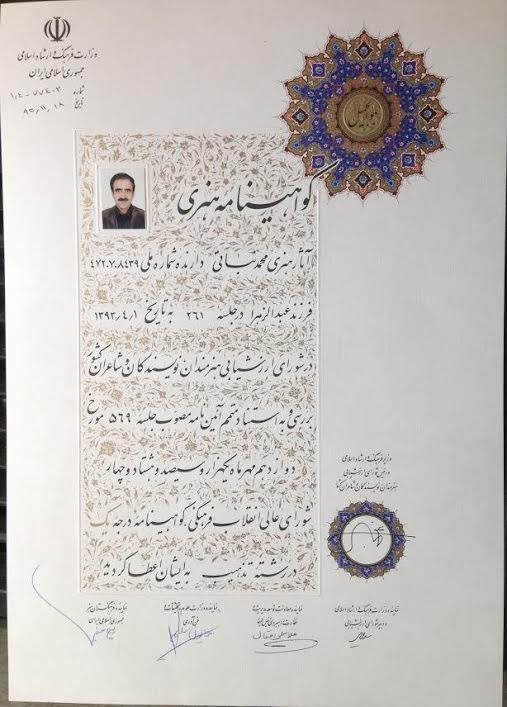 وزارت فرهنگ و ارشاد اسلامی
جمهوری اسلامی ایران
شماره ۱۰۴-۷۷۴۰۳
تاریخ ۹۳,۱۱,۱۸
هوالجمیل
گواهینامه هنری
آثار هنری محمد نباتی دارنده شماره ملی ۴۷۲۰۷۰۸۴۳۹
فرزند عبدالزهرا در جلسه ۲۶۱ به تاریخ ۱۳۹۳,۴,۱
در شورای ارزشیابی هنرمندان نویسندگان و شاعران کشور
بررسی و به استناد متمم آئین نامه مصوب جلسه ۵۶۹ مورخ
دوازدهم مهرماه یکهزار و سیصد و هشتاد و چهار
شورای عالی انقلاب فرهنگی گواهینامه درجه یک
در رشته تذهیب به ایشان اعطا گردید
وزیر فرهنگ و ارشاد اسلامی
و رئیس شورای ارزشیابی
هنرمندان نویسندگان و شاعران کشور
نماینده وزارت فرهنگ و ارشاد اسلامی
و دبیر شورای ارزشیابی
نماینده معاونت توسعه مدیریت و
نماینده وزارت علوم، تحقیقات و
فن‌آوری
نماینده فرهنگستان هنر
جمهوری اسلامی ایران